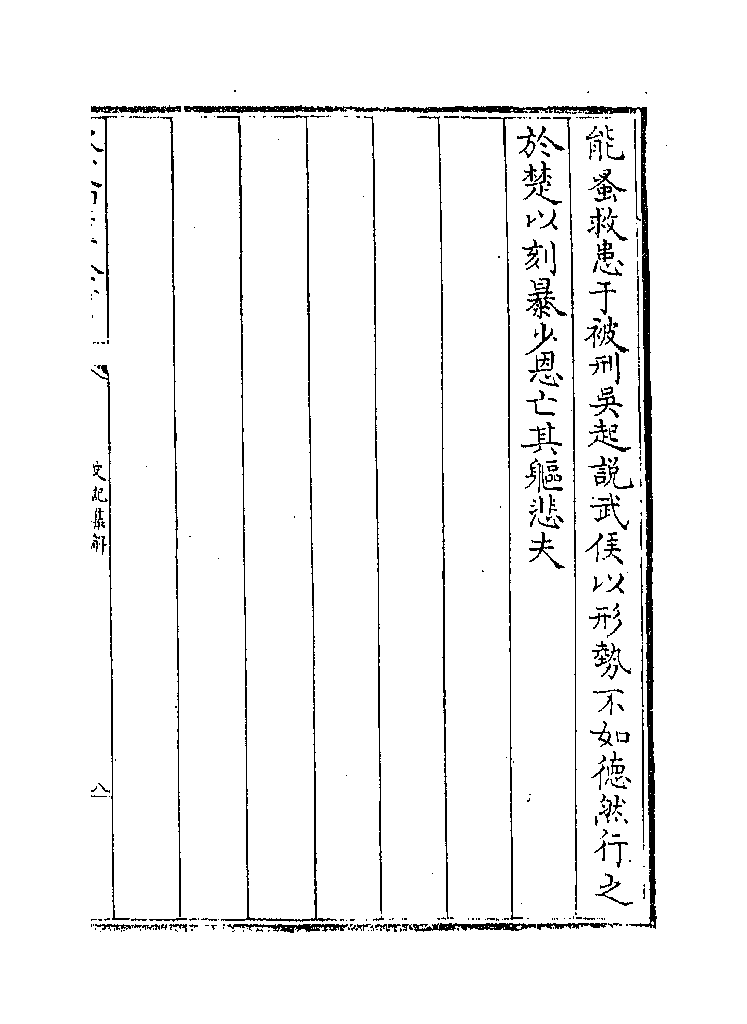 能蚤救患于被刑吳起說武侯以形勢不如徳然行之
於楚以刻暴少恩亡其軀悲夫
史記集解
八